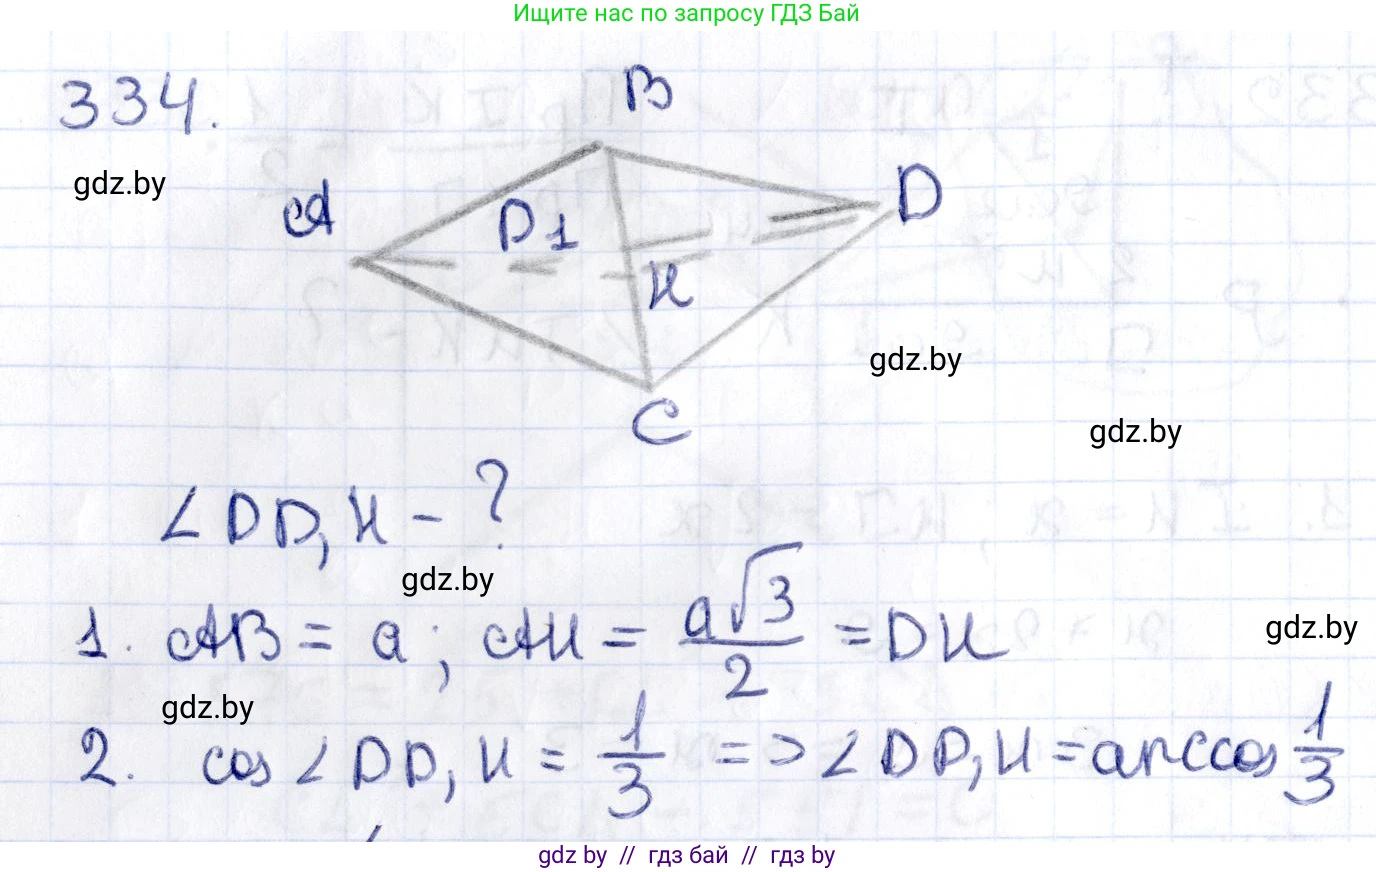 Ищите нас по запросу ГДЗ Бай
334.
B
gdz.by
A
D1
D
H
gdz.by
C
gdz.by
∠DD₁H - ?
gdz.by
1. AB = a; AH = a√3/2 = DH
gdz.by
gdz.by
2. cos∠DD₁H = 1/3 => ∠DD₁H = arccos 1/3
gdz by // гдз бай // гдз by